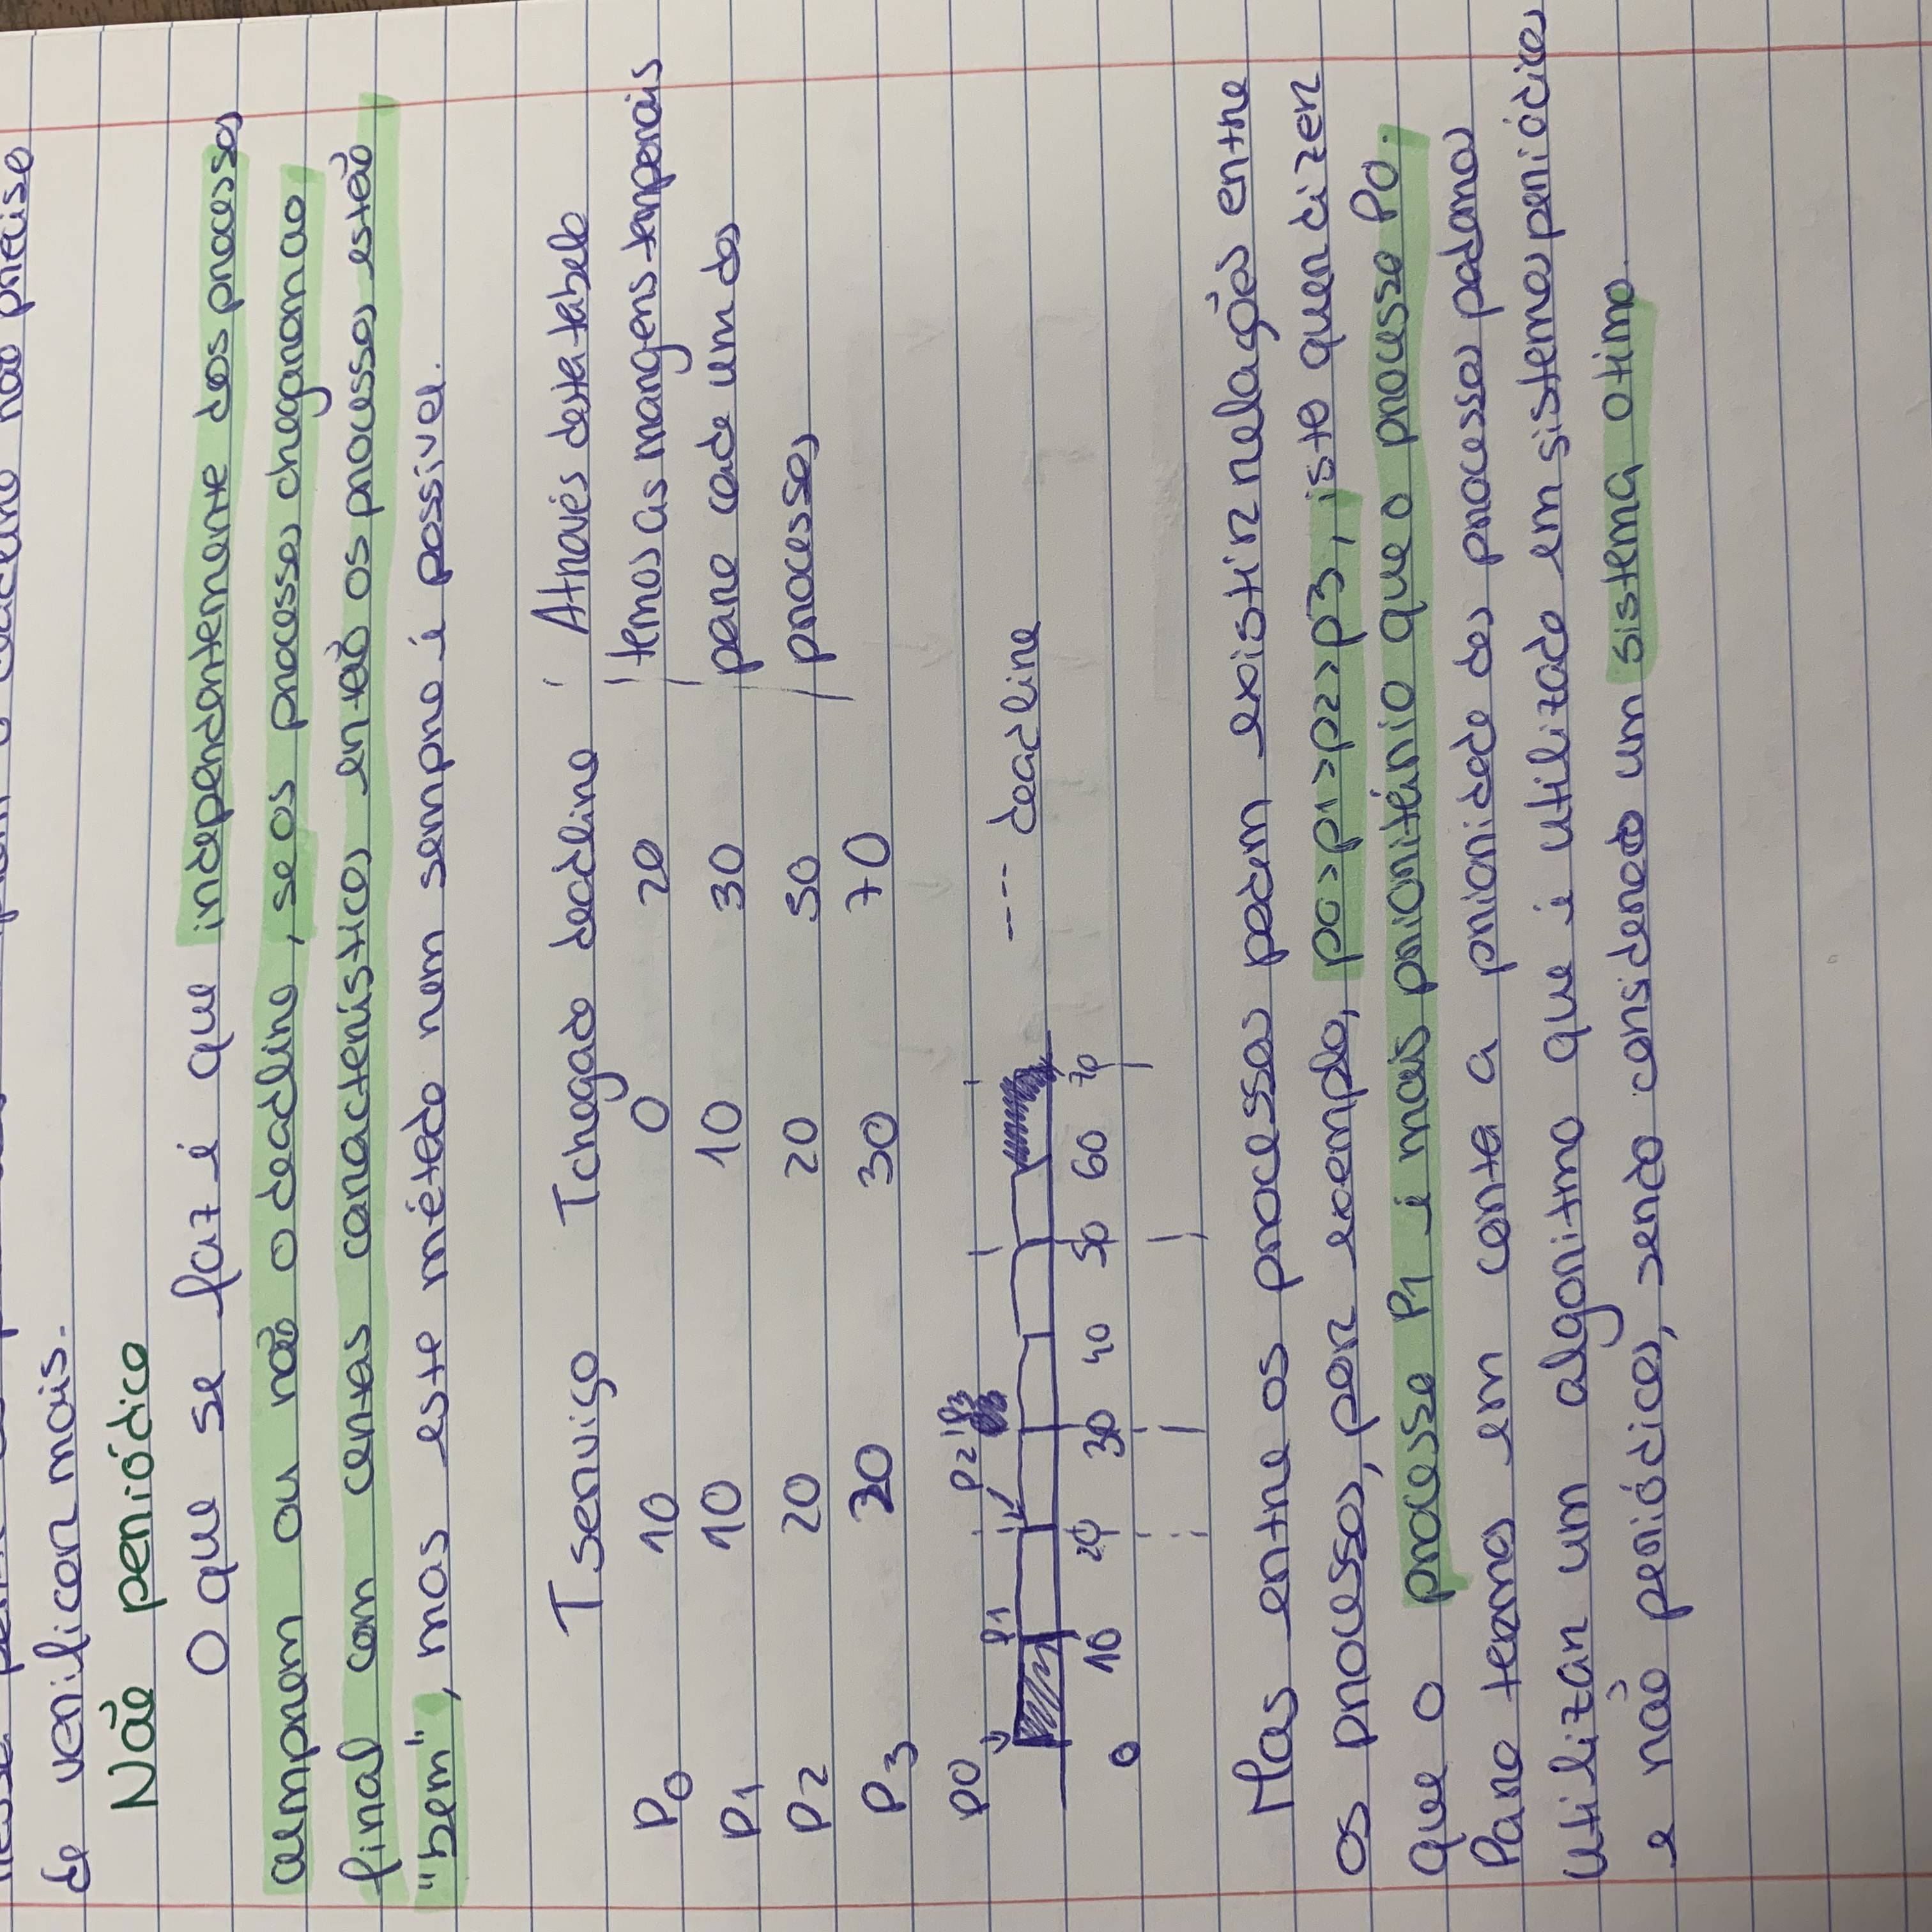 não preciso
de verificar mais.
Não periódico
O que se faz é que independentemente dos processos
cumprem ou não o deadline, se os processos chegaram ao
final com certas características então os processos estão
"bem", mas este método nem sempre é possivel.
Tserviço Tchegada deadline Através desta tabela
P0 10 0 20 temos as margens temporais
P1 10 10 30 para cada um dos
P2 20 20 50 processos
P3 20 30 70
P0 P1 P2 P3
--- deadline
0 10 20 30 40 50 60 70
Mas entre os processos podem existir relações entre
os processos, por exemplo, p0>p1>p2>p3, isto quer dizer
que o processo P1 é mais prioritário que o processo P0.
Para termos em conta a prioridade dos processos podemos
utilizar um algoritmo que é utilizado em sistemas periódicos
e não periódicos, sendo considerado um sistema otimo.